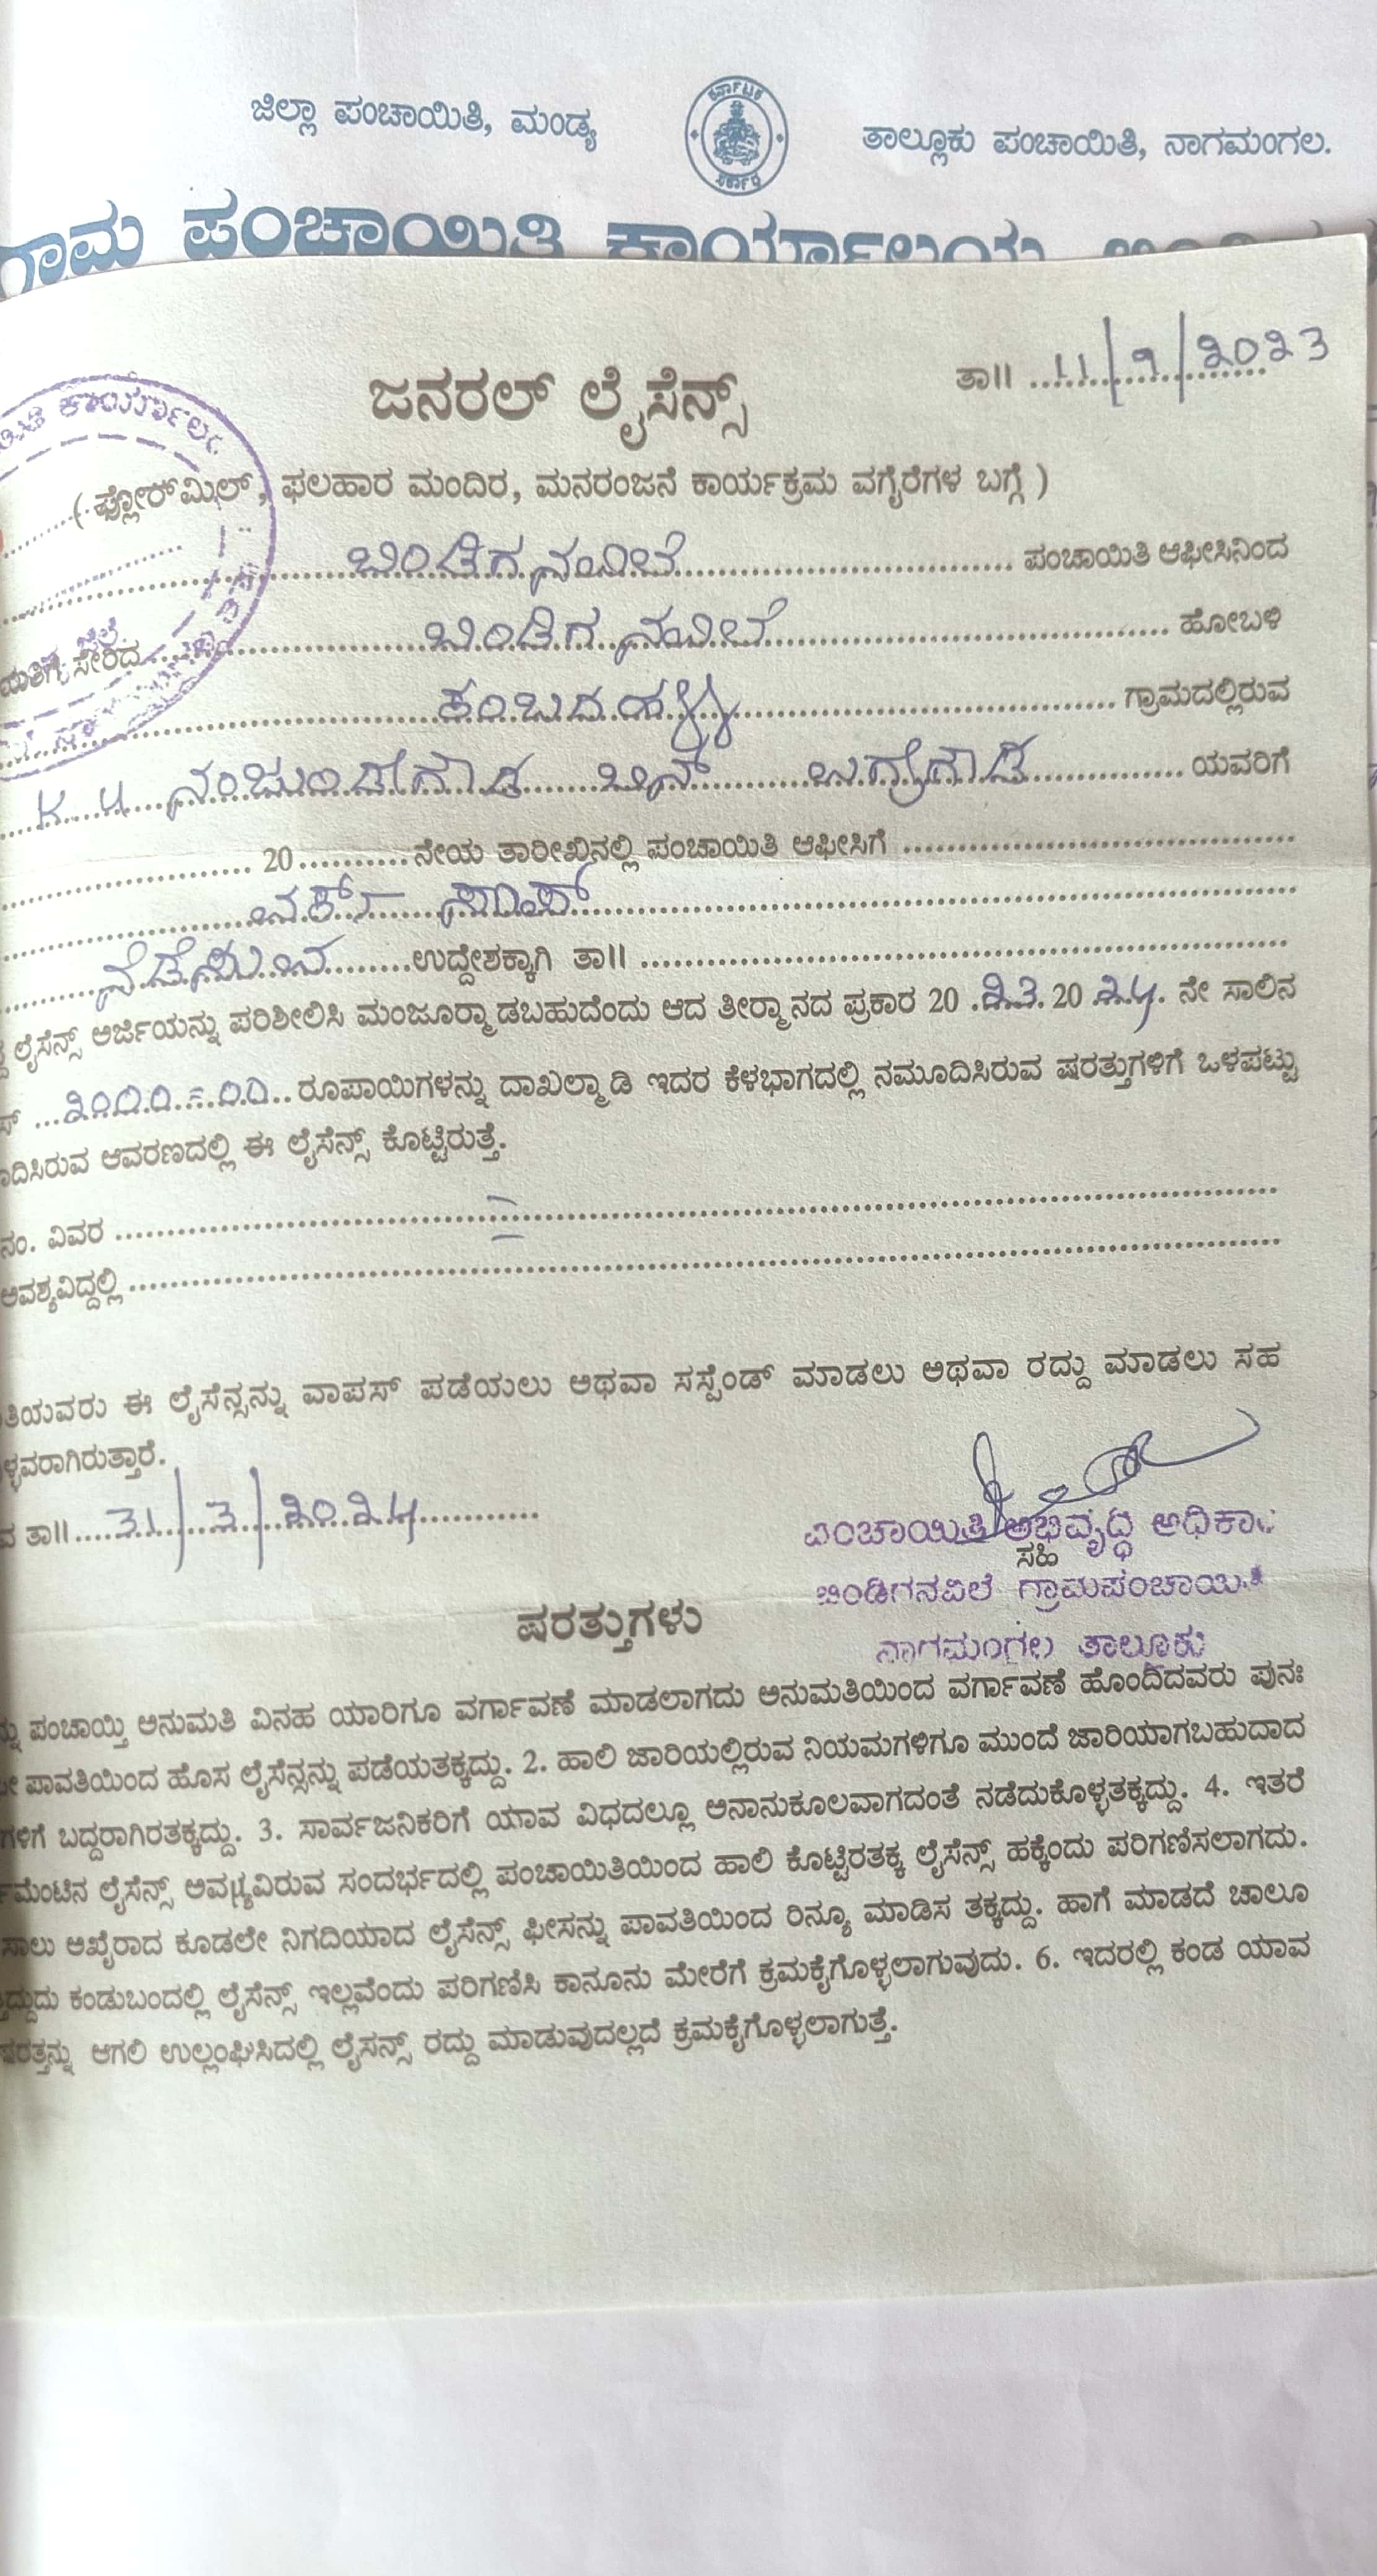 ಜಿಲ್ಲಾ ಪಂಚಾಯಿತಿ, ಮಂಡ್ಯ
ತಾಲ್ಲೂಕು ಪಂಚಾಯಿತಿ, ನಾಗಮಂಗಲ.
ಗ್ರಾಮ ಪಂಚಾಯಿತಿ ಕಾರ್ಯಾಲಯ,
ತಾ॥ 11/9/2023
ಜನರಲ್ ಲೈಸೆನ್ಸ್
( ಫ್ಲೋರ್‌ಮಿಲ್, ಫಲಹಾರ ಮಂದಿರ, ಮನರಂಜನೆ ಕಾರ್ಯಕ್ರಮ ವಗೈರೆಗಳ ಬಗ್ಗೆ )
ಬಿಂಡಿಗನವಿಲೆ ಪಂಚಾಯಿತಿ ಆಫೀಸಿನಿಂದ
ಸೇರಿದ ಬಿಂಡಿಗನವಿಲೆ ಹೋಬಳಿ
ಕಂಬದಹಳ್ಳಿ ಗ್ರಾಮದಲ್ಲಿರುವ
ನಂಜುಂಡೇಗೌಡ ಬಿನ್ ಯವರಿಗೆ
20 ನೇಯ ತಾರೀಖಿನಲ್ಲಿ ಪಂಚಾಯಿತಿ ಆಫೀಸಿಗೆ
ವರ್ಕ್ ಶಾಪ್
ನೆಡೆಸುವ ಉದ್ದೇಶಕ್ಕಾಗಿ ತಾ॥
ಲೈಸೆನ್ಸ್ ಅರ್ಜಿಯನ್ನು ಪರಿಶೀಲಿಸಿ ಮಂಜೂರ್‍ಮಾಡಬಹುದೆಂದು ಆದ ತೀರ್‍ಮಾನದ ಪ್ರಕಾರ 20 23 20 24 ನೇ ಸಾಲಿನ
2000=00 ರೂಪಾಯಿಗಳನ್ನು ದಾಖಲ್ಮಾಡಿ ಇದರ ಕೆಳಭಾಗದಲ್ಲಿ ನಮೂದಿಸಿರುವ ಷರತ್ತುಗಳಿಗೆ ಒಳಪಟ್ಟು
ಆವರಣದಲ್ಲಿ ಈ ಲೈಸೆನ್ಸ್ ಕೊಟ್ಟಿರುತ್ತೆ.
ನಂ. ವಿವರ
ಅವಶ್ಯವಿದ್ದಲ್ಲಿ
ಈ ಲೈಸೆನ್ಸನ್ನು ವಾಪಸ್ ಪಡೆಯಲು ಅಥವಾ ಸಸ್ಪೆಂಡ್ ಮಾಡಲು ಅಥವಾ ರದ್ದು ಮಾಡಲು ಸಹ
ತಾ॥ 31/3/2024
ಪಂಚಾಯಿತಿ ಅಭಿವೃದ್ಧಿ ಅಧಿಕಾರಿ
ಸಹಿ
ಬಿಂಡಿಗನವಿಲೆ ಗ್ರಾಮಪಂಚಾಯಿತಿ
ನಾಗಮಂಗಲ ತಾಲೂಕು
ಷರತ್ತುಗಳು
ಪಂಚಾಯ್ತಿ ಅನುಮತಿ ವಿನಹ ಯಾರಿಗೂ ವರ್ಗಾವಣೆ ಮಾಡಲಾಗದು ಅನುಮತಿಯಿಂದ ವರ್ಗಾವಣೆ ಹೊಂದಿದವರು ಪುನಃ
ಪಾವತಿಯಿಂದ ಹೊಸ ಲೈಸೆನ್ಸನ್ನು ಪಡೆಯತಕ್ಕದ್ದು. 2. ಹಾಲಿ ಜಾರಿಯಲ್ಲಿರುವ ನಿಯಮಗಳಿಗೂ ಮುಂದೆ ಜಾರಿಯಾಗಬಹುದಾದ
ಬದ್ದರಾಗಿರತಕ್ಕದ್ದು. 3. ಸಾರ್ವಜನಿಕರಿಗೆ ಯಾವ ವಿಧದಲ್ಲೂ ಅನಾನುಕೂಲವಾಗದಂತೆ ನಡೆದುಕೊಳ್ಳತಕ್ಕದ್ದು. 4. ಇತರೆ
ಲೈಸೆನ್ಸ್ ಅವಶ್ಯವಿರುವ ಸಂದರ್ಭದಲ್ಲಿ ಪಂಚಾಯಿತಿಯಿಂದ ಹಾಲಿ ಕೊಟ್ಟಿರತಕ್ಕ ಲೈಸೆನ್ಸ್ ಹಕ್ಕೆಂದು ಪರಿಗಣಿಸಲಾಗದು.
ಸಾಲು ಅಖೈರಾದ ಕೂಡಲೇ ನಿಗದಿಯಾದ ಲೈಸೆನ್ಸ್ ಫೀಸನ್ನು ಪಾವತಿಯಿಂದ ರಿನ್ಯೂ ಮಾಡಿಸ ತಕ್ಕದ್ದು. ಹಾಗೆ ಮಾಡದೆ ಚಾಲೂ
ಕಂಡುಬಂದಲ್ಲಿ ಲೈಸೆನ್ಸ್ ಇಲ್ಲವೆಂದು ಪರಿಗಣಿಸಿ ಕಾನೂನು ಮೇರೆಗೆ ಕ್ರಮಕೈಗೊಳ್ಳಲಾಗುವುದು. 6. ಇದರಲ್ಲಿ ಕಂಡ ಯಾವ
ಷರತ್ತನ್ನು ಆಗಲಿ ಉಲ್ಲಂಘಿಸಿದಲ್ಲಿ ಲೈಸನ್ಸ್ ರದ್ದು ಮಾಡುವುದಲ್ಲದೆ ಕ್ರಮಕೈಗೊಳ್ಳಲಾಗುತ್ತೆ.